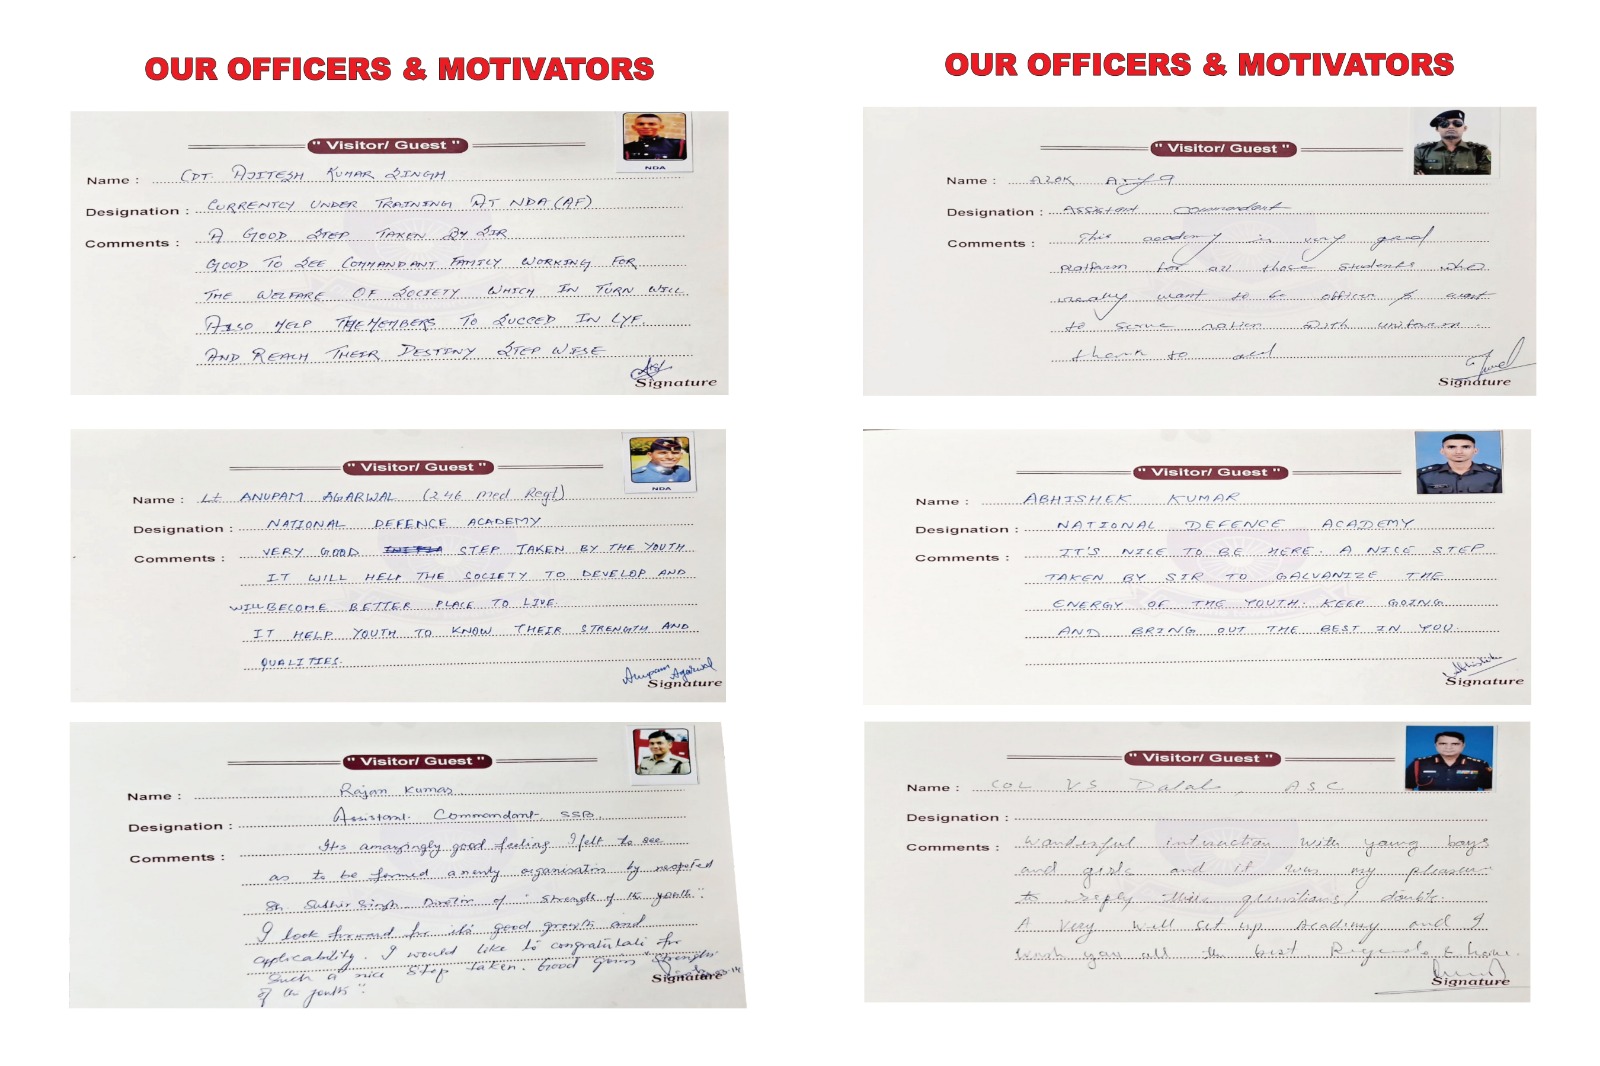 OUR OFFICERS & MOTIVATORS
" Visitor/ Guest "
NDA
Name : CDT. AJITESH KUMAR SINGH
Designation : CURRENTLY UNDER TRAINING AT NDA (AF)
Comments : A GOOD STEP TAKEN BY SIR
GOOD TO SEE COMMANDANT FAMILY WORKING FOR
THE WELFARE OF SOCIETY WHICH IN TURN WILL
ALSO HELP THE MEMBERS TO SUCCED IN LYF
AND REACH THEIR DESTINY STEP WISE
Signature
" Visitor/ Guest "
NDA
Name : Lt ANUPAM AGARWAL (246 Med Regt)
Designation : NATIONAL DEFENCE ACADEMY
Comments : VERY GOOD STEP TAKEN BY THE YOUTH
IT WILL HELP THE SOCIETY TO DEVELOP AND
WILL BECOME BETTER PLACE TO LIVE.
IT HELP YOUTH TO KNOW THEIR STRENGTH AND
QUALITIES.
Anupam Agarwal
Signature
" Visitor/ Guest "
Name : Rajan Kumar.
Designation : Assistant Commandant, SSB.
Comments : It's amazingly good feeling I felt to see
as to be formed a newly organisation by respected
Sh. Sudhir Singh Director of "Strength of the youth".
I look forward for its good growth and
applicability. I would like to congratulate for
Such a nice Step taken. Good going "Strength
of the youth".
Signature
OUR OFFICERS & MOTIVATORS
" Visitor/ Guest "
Name :
Designation : Assistant Commandant
Comments : This academy is very good
platform for all those students who
really want to be officer & want
to serve nation with uniform.
thank to all
Signature
" Visitor/ Guest "
Name : ABHISHEK KUMAR
Designation : NATIONAL DEFENCE ACADEMY
Comments : IT'S NICE TO BE HERE. A NICE STEP
TAKEN BY SIR TO GALVANIZE THE
ENERGY OF THE YOUTH. KEEP GOING
AND BRING OUT THE BEST IN YOU.
Abhishek
Signature
" Visitor/ Guest "
Name : COL VS Dalal, ASC
Designation :
Comments : Wonderful interaction with young boys
and girls and it was my pleasure
to reply their questions/ doubts.
A very well set up Academy and I
wish you all the best Regards &
Signature